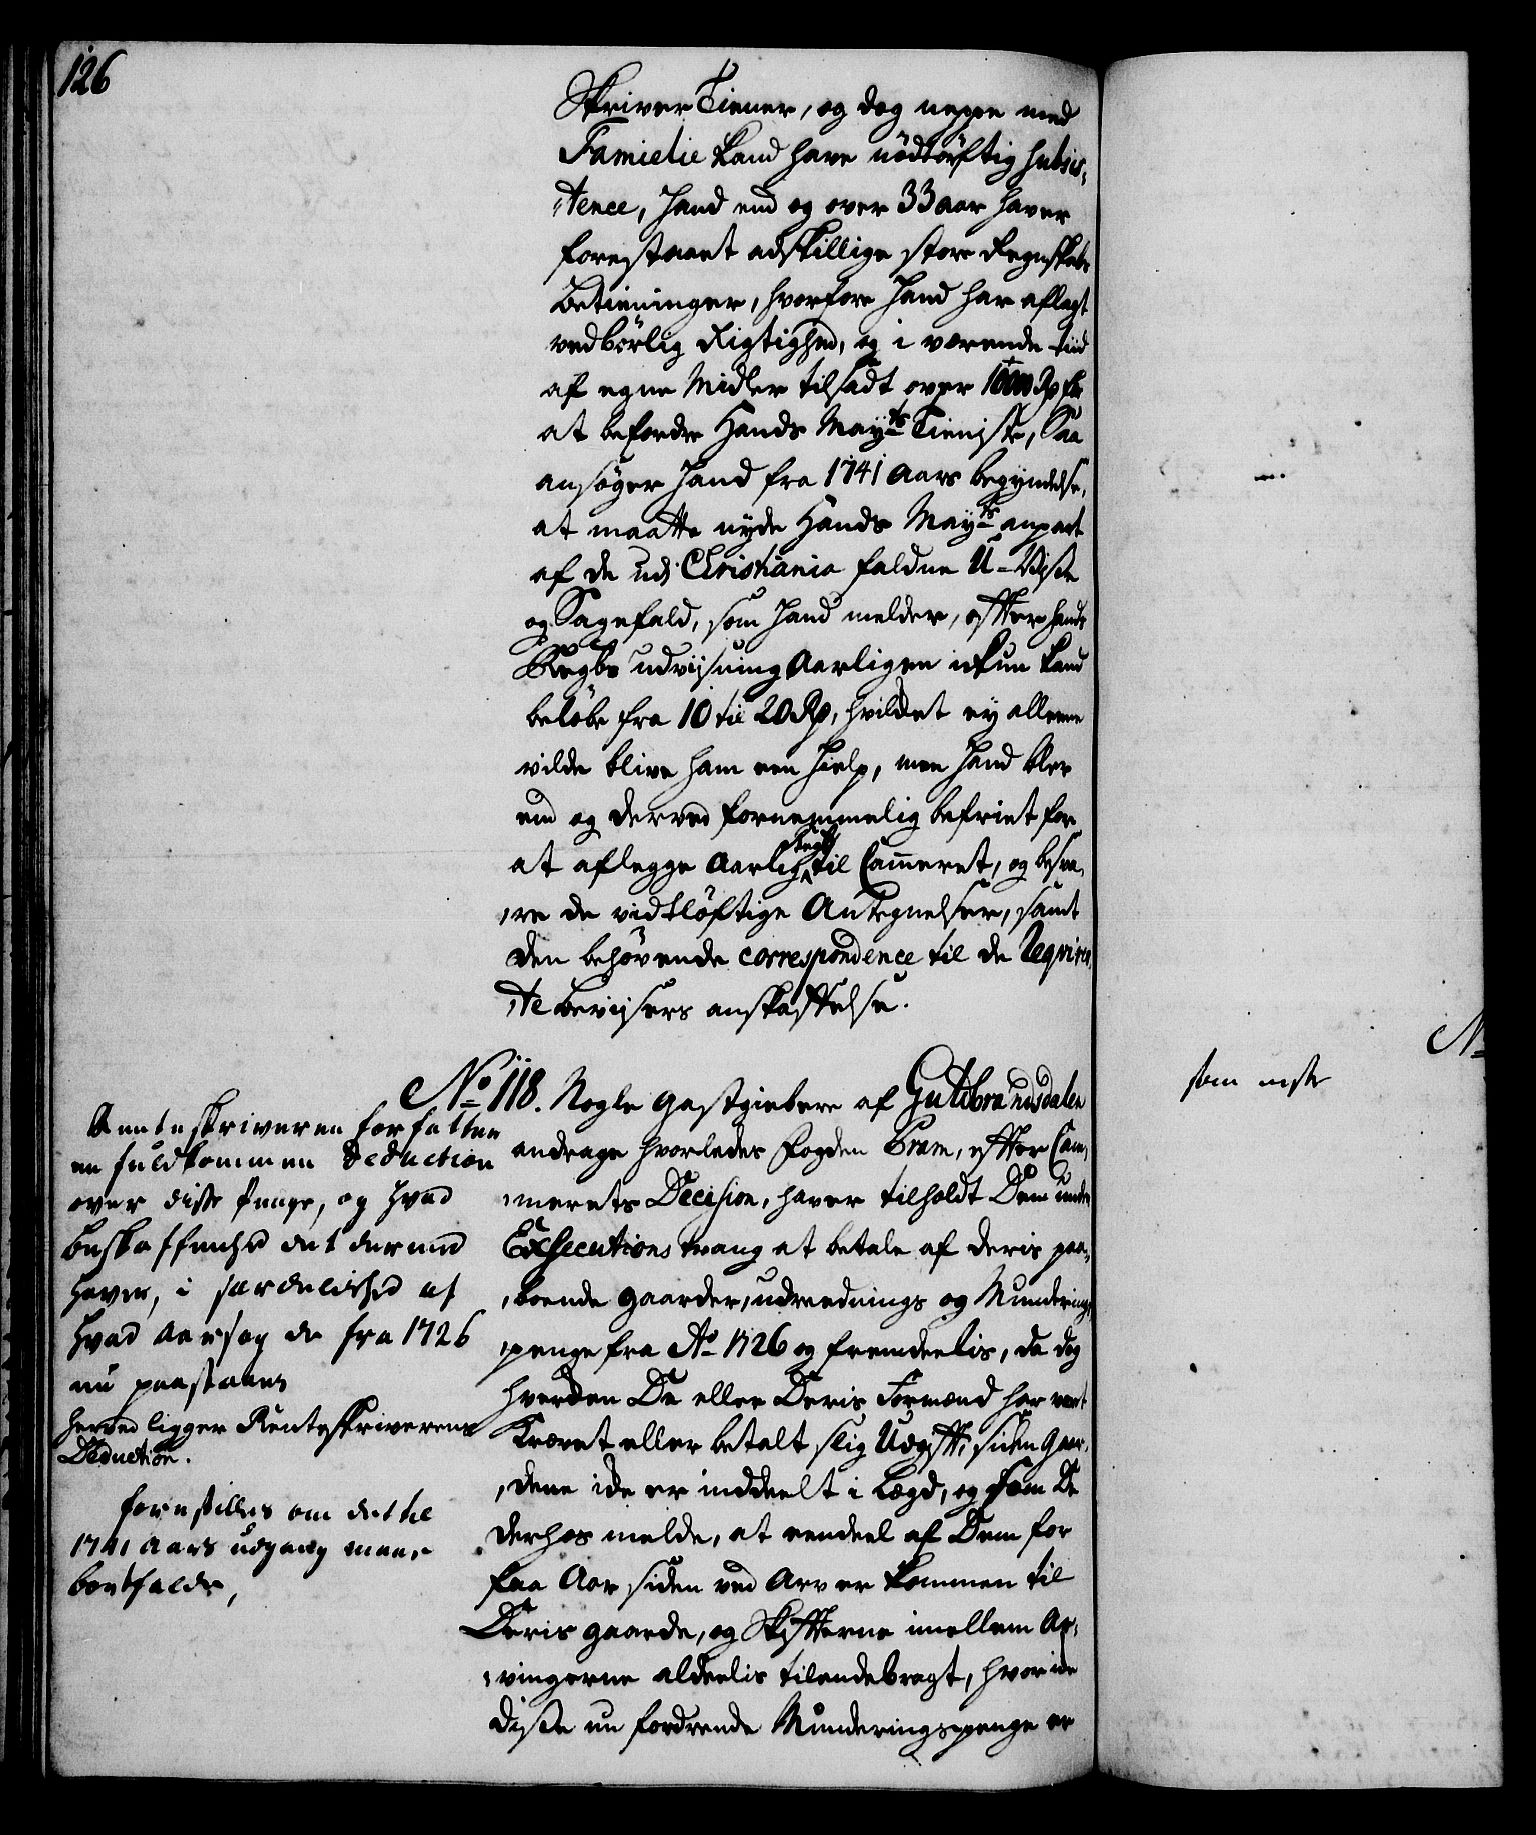 126
Skriver Tiener, og dog neppe med
Familie kand have nødtørftig subsis,
,tence, hand end og over 33 aar haver
forestaaet adskillige store Regnskabs
Betieninger, hvorfore hand har aflagt
vedbørlig Rigtighed, og i værende tiid
af egne Midler tilsadt over
at befordre Hands Mayts Tieniste, Saa
ansøger hand fra 1741 Aars begyndelse,
at maatte nyde Hands Mayts anpart
af de udj Christiania faldne U-Visse
og Sagefald, som hand melder, efter hands
Regbs udviisning Aarligen ickun kand
beløbe fra 10 til 20 Rd, hvilket ey alleene
vilde blive ham een hielp, men hand blev
end og derved fornemmelig befriet for
at aflegge Aarlig Regb til Cammeret, og besva,
,re de vidtløftige Antegnelser, samt
den behøvende correspondence til de Reqvire,
,te Beviisers anskaffelse.
No 118. Nogle gastgiebere af Guldbrandsdalen
andrage hvorledes Fogden Gram, efter Cam,
,merets Decision, haver tilholdt Dem under
Exsecutions tvang at betale af deris paa,
,boende gaarder, udreednings og Munderings,
,penge fra Ao 1726 og fremdeelis, da dog
hverden De eller Deris Formænd har vært
Krævet eller betalt slig Udgift, siden gaar,
,dene icke er inddeelt i Lægd, og som De
derhos melde, at eendeel af Dem for
faa Aar siden ved Arv er kommen til
Deris gaarde, og Skifterne imellem Ar,
,vingerne aldeelis tilendebragt, hvor icke
disse nu fordrende Munderingspenge er
Renteskriveren forfatter
en fuldkommen Deduction
over disse penge, og hvad
beskaffenhed det dermed
haver, i særdelished af
hvad aarsag de fra 1726
nu paastaaes
herved ligger Renteskriverens
Deduction.
forestilles om det til
1741 Aars udgang maae
bortfalde,
No
som